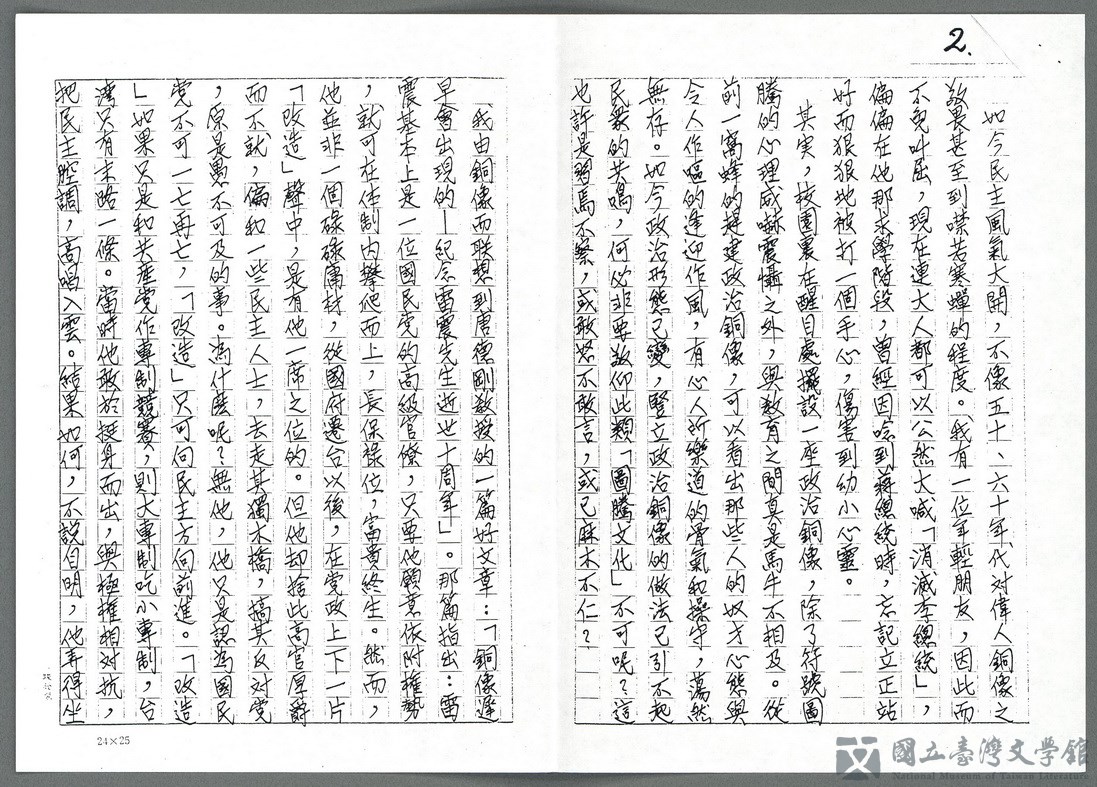 2.
如今民主風氣大開，不像五十、六十年代对偉人銅像之
敬畏甚至到噤若寒蟬的程度。我有一位年輕朋友，因此而
不免叫屈，現在連大人都可以公然大喊「消滅李總統」，
偏偏在他那求學階段，曾經因唸到蔣總統時，忘記立正站
好而狠狠地被打一個手心，傷害到幼小心靈。
其实，校園裏在醒目處擺設一座政治銅像，除了符號圖
騰的心理威嚇震懾之外，與教育之間真是馬牛不相及。從
前一窩蜂的趕建政治銅像，可以看出那些人的奴才心態與
令人作嘔的逢迎作風，有心人所樂道的骨氣和操守，蕩然
無存。如今政治形態已變，豎立政治銅像的做法已引不起
民衆的共鳴，何必非要敬仰此類「圖騰文化」不可呢？這
也許是習焉不察，或敢怒不敢言，或已麻木不仁？
我由銅像而联想到唐德剛教授的一篇好文章：「銅像遲
早會出現的—紀念雷震先生逝世十周年」。那篇指出：雷
震基本上是一位國民党的高級官僚，只要他願意依附權勢
，就可在体制內攀爬而上，長保祿位，富貴終生。然而，
他並非一個碌碌庸材，從國府遷台以後，在党政上下一片
「改造」聲中，是有他一席之位的。但他却捨此高官厚爵
而不就，偏和一些民主人士，去走其獨木橋，搞其反对党
，原是愚不可及的事。為什麼呢？無他，他只是認為國民
党不可一七再七，「改造」只可向民主方向前進。「改造
」如果只是和共產党作專制競賽，則大專制吃小專制，台
湾只有末路一條。當時他敢於挺身而出，與極權相対抗，
把民主腔調，高唱入雲。結果如何，不說自明，他弄得坐
24×25
國立臺灣文學館
National Museum of Taiwan Literature